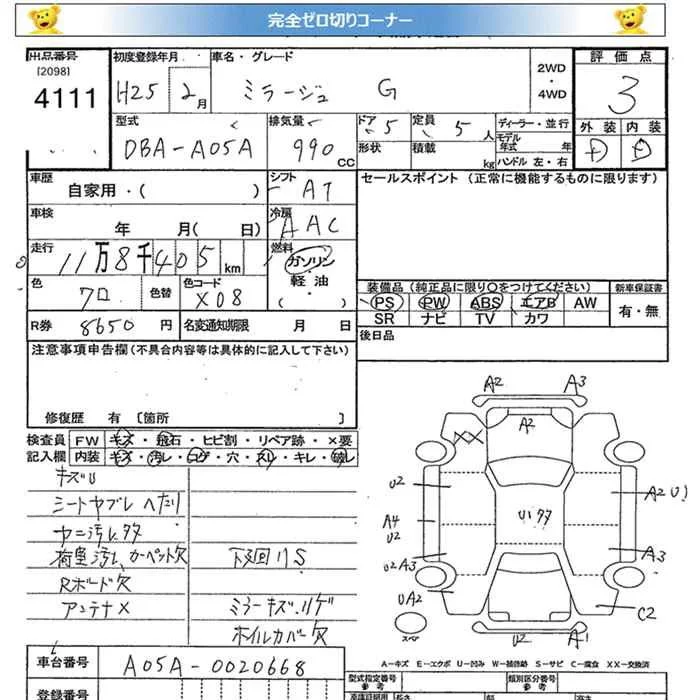 完全ゼロ切りコーナー
出品番号 初度登録年月 車名・グレード 2WD・4WD 評価点
[2098]
4111 H25 2月 ミラージュ G 3
型式 排気量 ドア 5 定員 5人 ディーラー・並行 外装 内装
DBA-A05A 990CC 形状 積載 kg モデル年式 年 D D
ハンドル 左・右
車歴 自家用・( ) シフト AT セールスポイント(正常に機能するものに限ります)
車検 年 月( 日) 冷房 AAC
走行 11万8千405km 燃料 ガソリン・軽油・( )
色 クロ 色替 色コード X08 装備品(純正品に限り○をつけてください) 新車保証書
PS PW ABS エアB AW 有・無
SR ナビ TV カワ
R券 8650円 名変通知期限 月 日 後日品
注意事項申告欄(不具合内容等は具体的に記入して下さい)
修復歴 有 〔箇所 〕
検査員 FW キズ・飛石・ヒビ割・リペア跡・×要
記入欄 内装 キズ・汚レ・コゲ・穴・スレ・キレ・破レ
キズU
シートヤブレ ヘタリ
ヤニ汚レ多
荷室汚レ、カーペット欠 下廻りS
Rボード欠
アンテナ× ミラーキズ、ハゲ
ホイルカバー欠
A2 A3
A2
XX
U2 A2 U1
A4 U1多
U2
U2 A3 A3
UA2 C2
スペア U2 A1
A-キズ E-エクボ U-凹み W-補修跡 S-サビ C-腐食 XX-交換済
車台番号 A05A-0020668 型式指定番号 参考 類別区分番号 参考
登録番号 長さ 幅 高さ